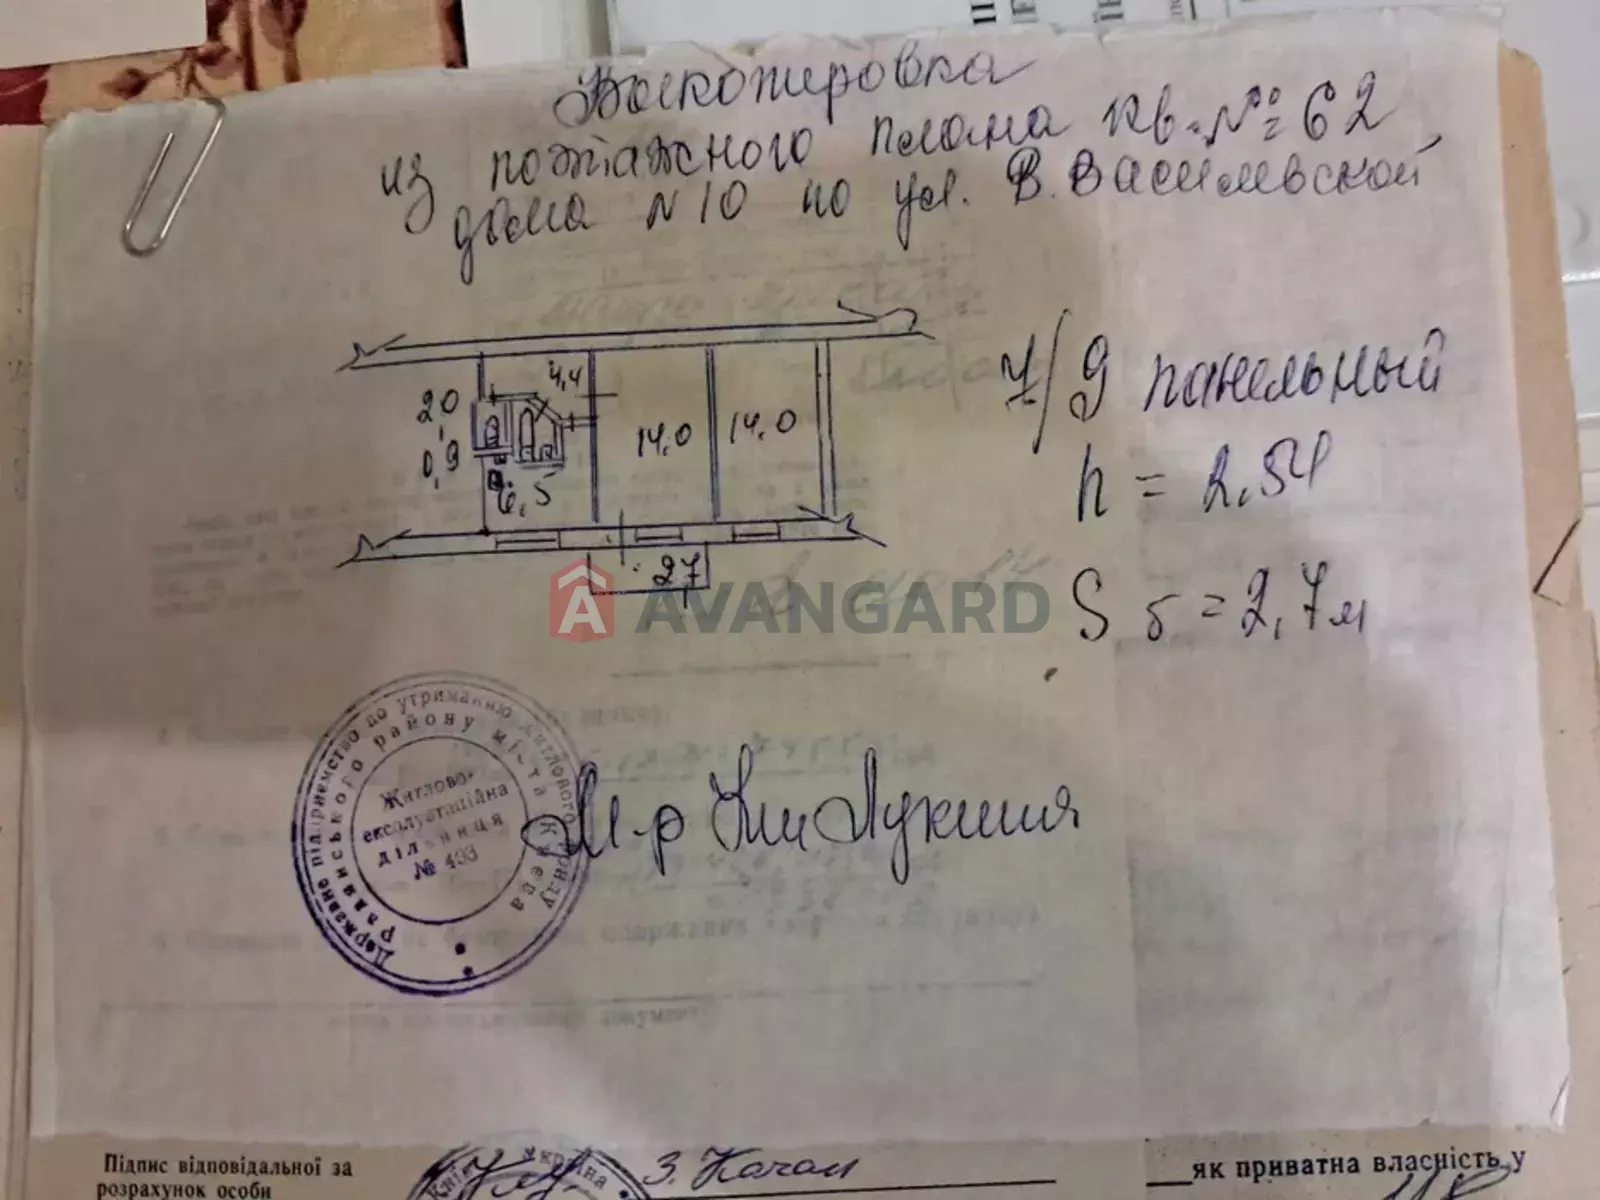 Выкопировка
из поэтажного плана кв. № 62
дома № 10 по ул. В. Василевской
7/9 панельный
h = 2,54
S б = 2,7 м
4,4
2,0
0,9
14,0
14,0
6,5
2,7
AVANGARD
Державне підприємство по утриманню житлового фонду
Радянського району міста Києва
Житлово-
експлуатаційна
дільниця
№ 433
Підпис відповідальної за
розрахунок особи
Україна
як приватна власність у